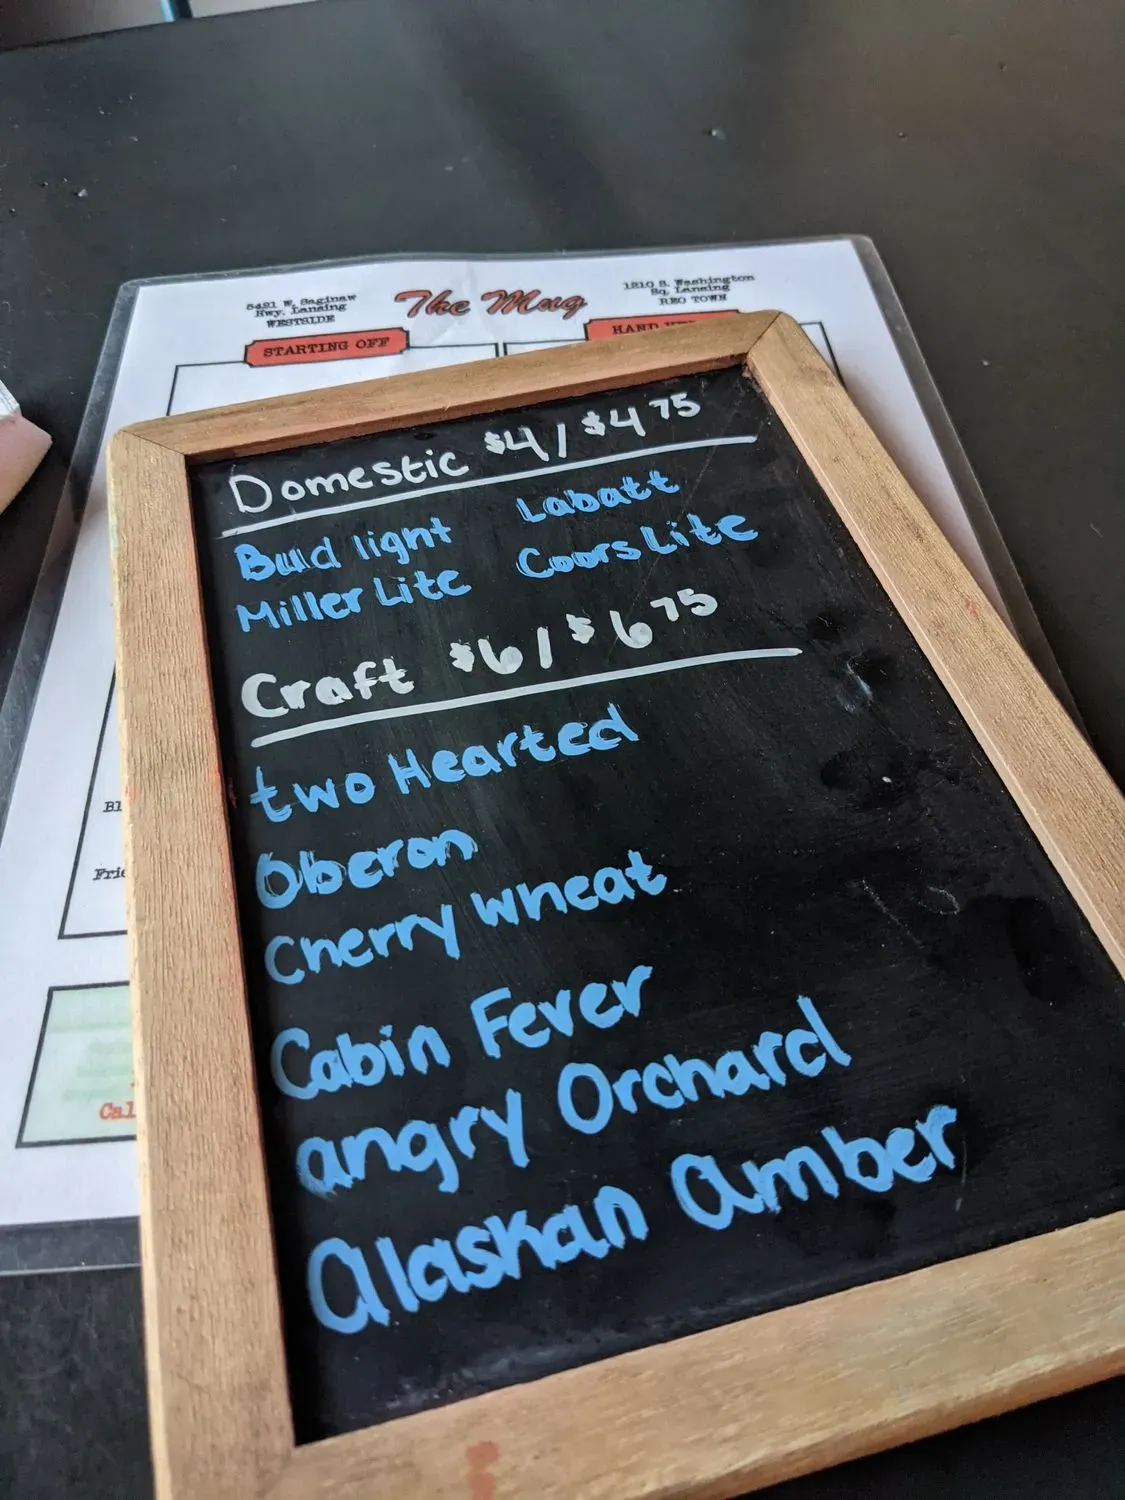 5421 W. Saginaw
Hwy. Lansing
WESTSIDE
The Mug
1210 S. Washington
Sq. Lansing
REO TOWN
STARTING OFF
HAND
Domestic $4 / $4 75
Bud light Labatt
Miller Lite Coors Lite
Craft $6 / $6 75
two Hearted
Oberon
Cherry Wheat
Cabin Fever
angry Orchard
Alaskan Amber